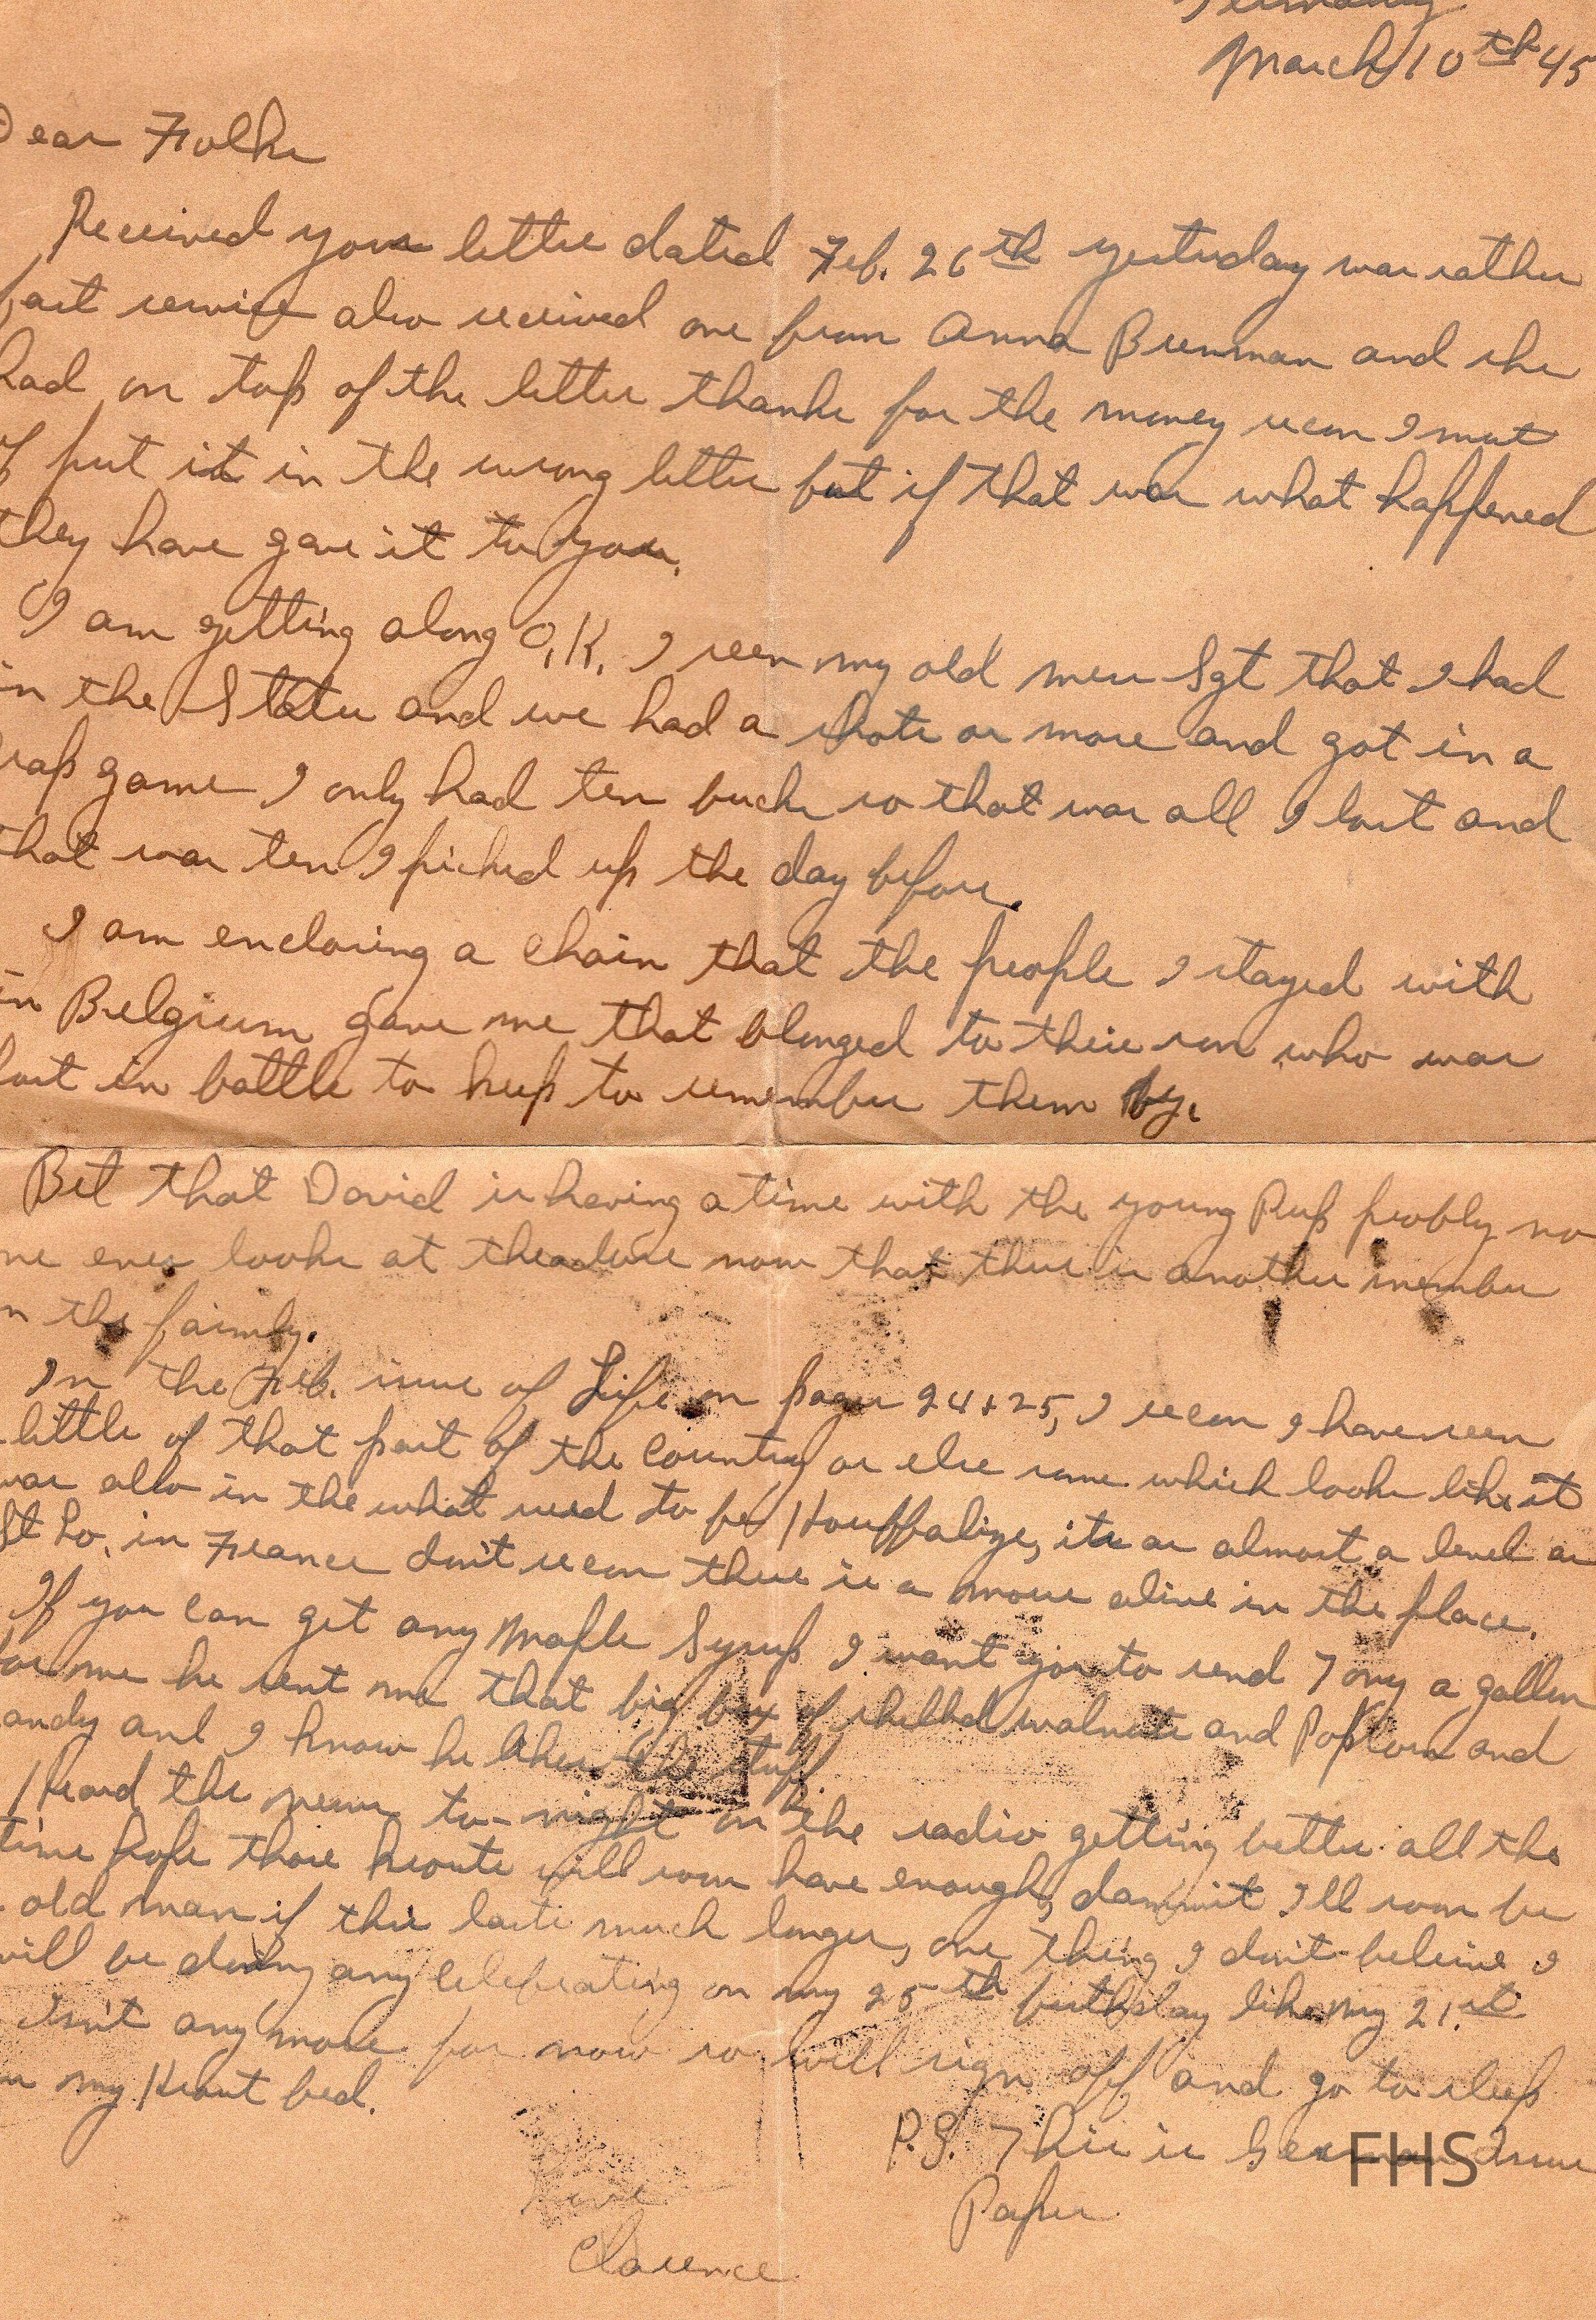 Germany
March 10th 45
Dear Folks
Received your letter dated Feb. 26th yesterday was rather
fast service also received one from Anna Brenman and she
had on top of the letter thanks for the money recon I must
of put it in the wrong letter but if that was what happened
they have gave it to you.
I am getting along O.K. I seen my old mess Sgt that I had
in the States and we had a shots or more and got in a
crap game I only had ten bucks so that was all I lost and
that was ten I picked up the day before.
I am enclosing a chain that the people I stayed with
in Belgium gave me that blonged to their son who was
lost in battle to keep to remember them by.
Bet that David is having a time with the young Pup probly no
one even looks at theadore now that there is another member
in the faimly.
In the Feb. issue of Life on pages 24 + 25, I recon I have seen
little of that part of the country or else some which looks like it
was also in the what used to be Houffalize, its as almost a level as
St Lo. in France don't recon there is a mouse alive in the place.
If you can get any Maple Syrup I want you to send Tony a gallon
for me he sent me that big box of shelled walnuts and Popcorn and
candy and I know he likes the stuff.
Heard the news to-night on the radio getting better all the
time hope those krouts will soon have enough, dammit I'll soon be
old man if this lasts much longer, one thing I don't believe I
will be doing any celebrating on my 25th birthday like my 21.st
Isn't any more for now so will sign off and go to sleep
in my Kraut bed.
P.S. This is German issue
Paper
Love
Clarence
FHS